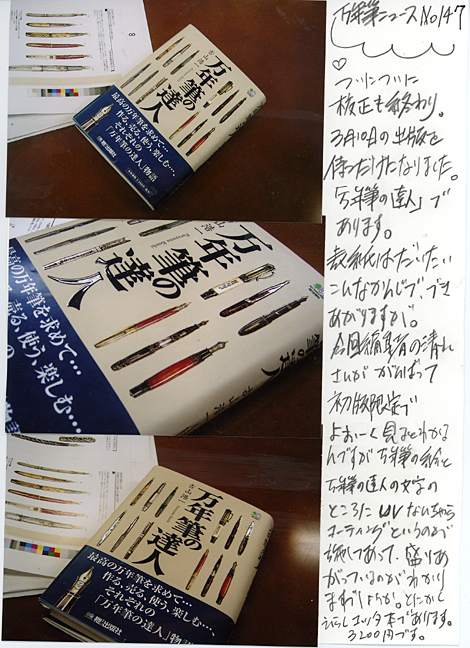 万年筆ニュース No147
ついについに
校正も終わり。
3月10日の出版を
待つだけになりました。
「万年筆の達人」で
あります。
表紙はだいたい
こんなかんじで、でき
あがりますが。
今回編集者の清水
さんが がんばって
初版限定で
よおーく見るとわかる
んですが万年筆の絵と
万年筆の達人の文字の
ところに UV なんちゃら
コーティングというのが
施してあって、盛りあ
がっているのがわかり
ますでしょうか。とにかく
本であります。
3200円です。
8
万年筆の達人
古山浩一
最高の万年筆を求めて…
作る、売る、使う、楽しむ…、
それぞれの
「万年筆の達人」物語
万年筆の達人
Furuyama Koichi
最高の万年筆を求めて…
売る、使う、楽しむ…、
万年筆の達人
古山浩一
最高の万年筆を求めて…
作る、売る、使う、楽しむ…、
それぞれの
「万年筆の達人」物語
枻出版社